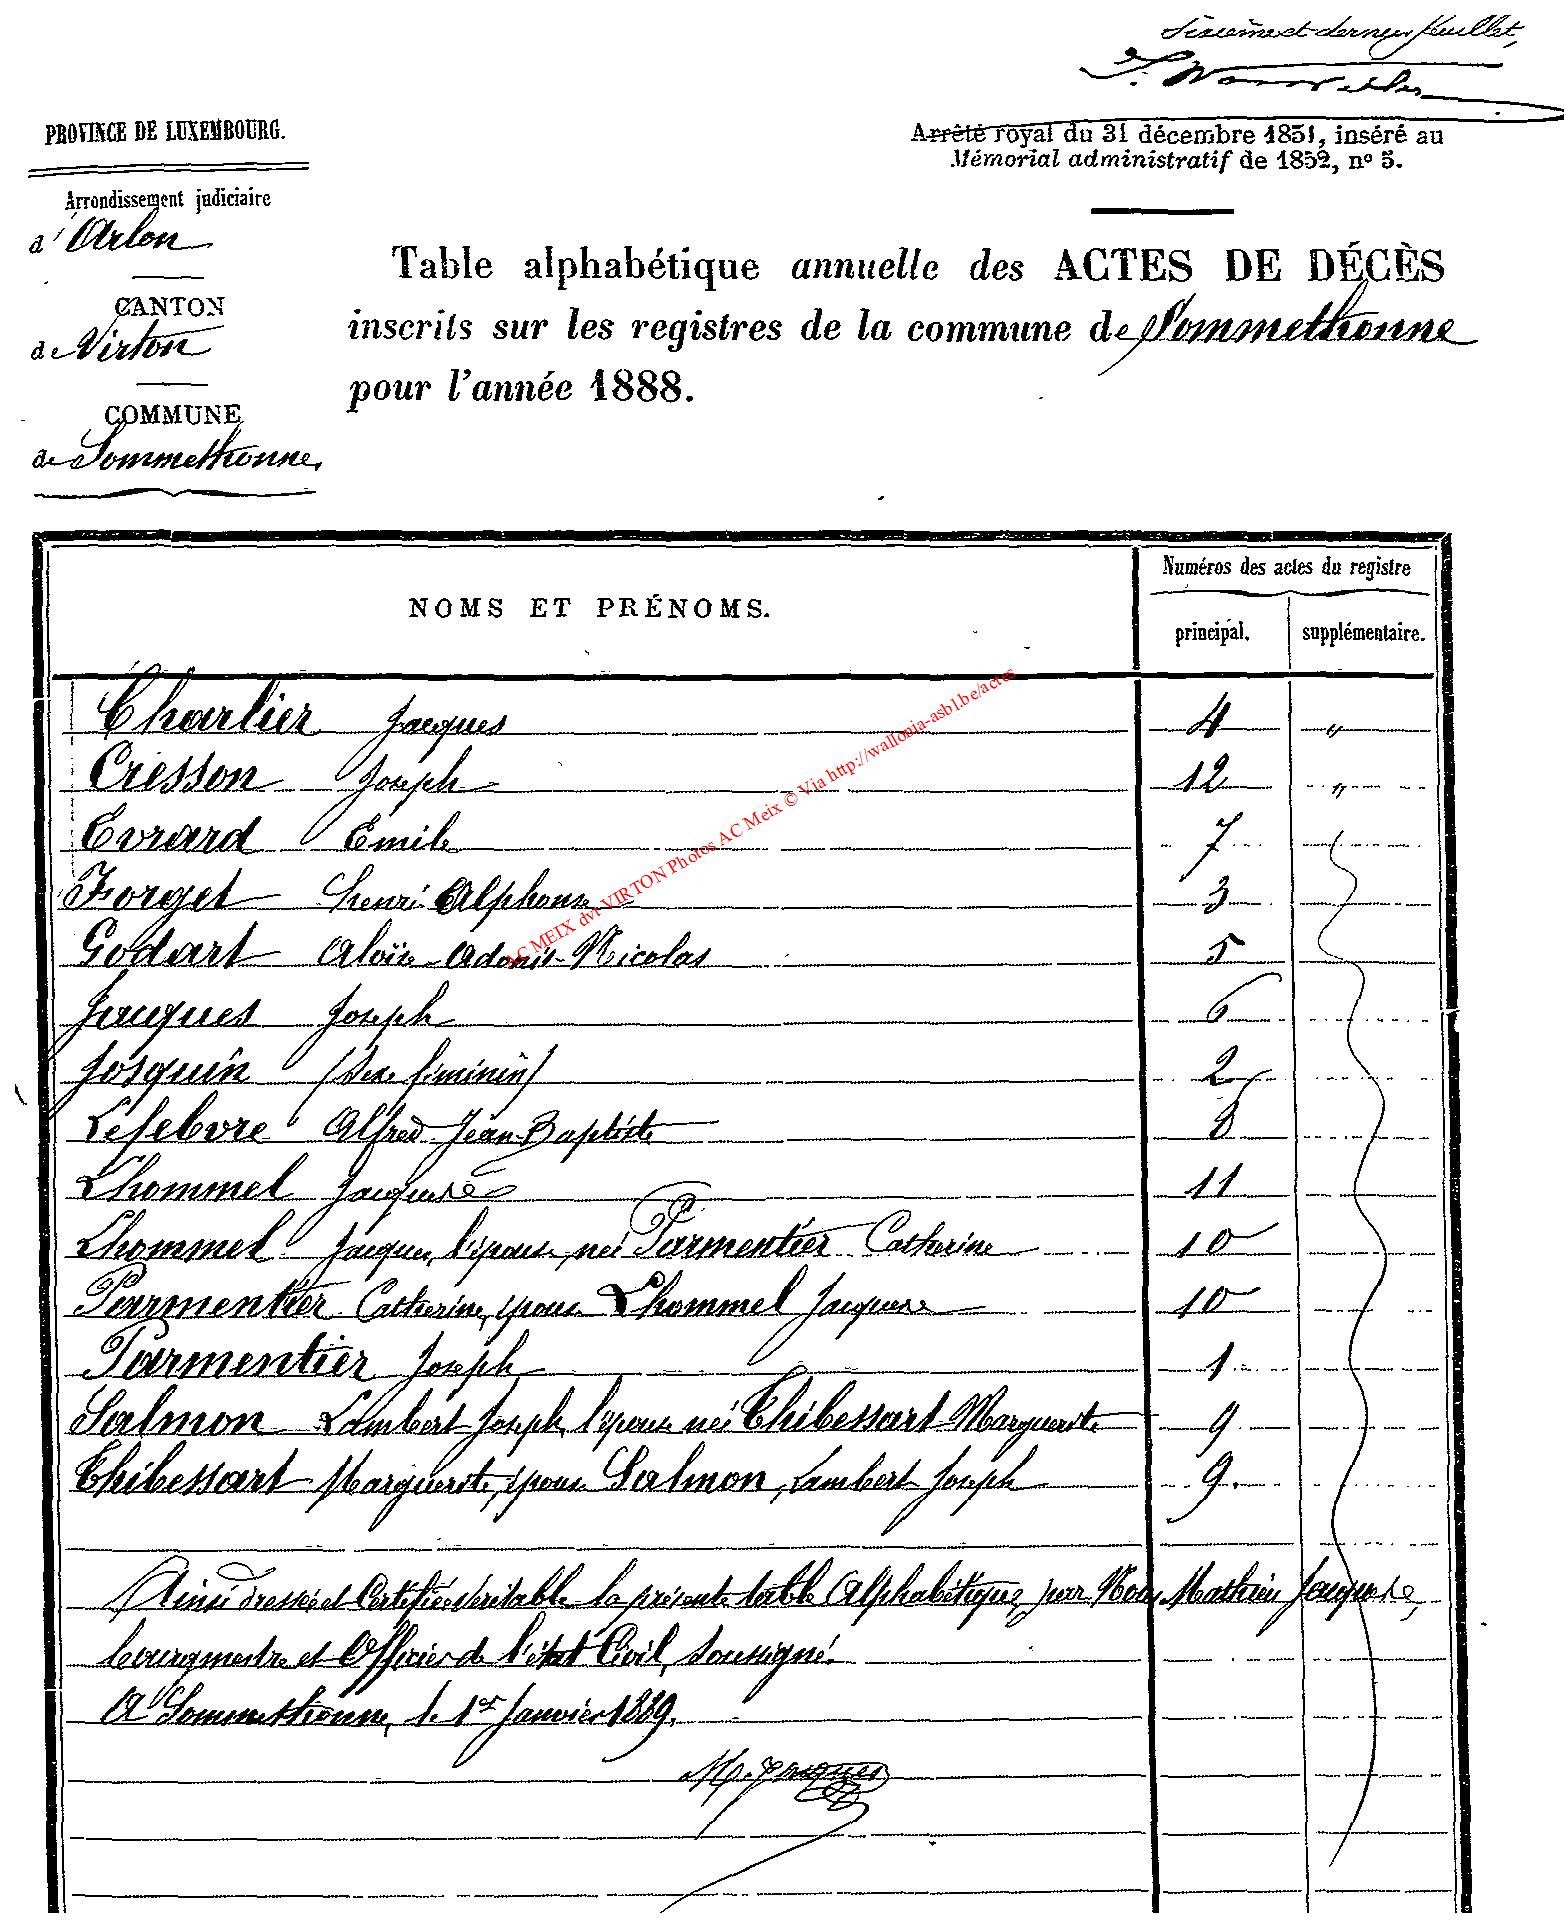 Sixième et dernier feuillet,
PROVINCE DE LUXEMBOURG.
Arrondissement judiciaire
d'Arlon
CANTON
de Virton
COMMUNE
de Sommethonne.
Arrêté royal du 31 décembre 1831, inséré au
Mémorial administratif de 1832, nº 5.
Table alphabétique annuelle des ACTES DE DÉCÈS
inscrits sur les registres de la commune de Sommethonne
pour l'année 1888.
NOMS ET PRÉNOMS.
Numéros des actes du registre
principal. supplémentaire.
Charlier Jacques 4 "
Cresson Joseph 12 "
Evrard Emile 7
Forget henri Alphonse 3
Godart Aloïse Adonis-Nicolas 5
Jacques Joseph 6
Josquin (Sexe féminin) 2
Lefebvre Alfred Jean-Baptiste 8
Lhommel Jacques 11
Lhommel Jacques, l'épouse née Parmentier Catherine 10
Parmentier Catherine, épouse Lhommel Jacques 10
Parmentier Joseph 1
Salmon Lambert-Joseph, l'épouse née Thibessart Marguerite 9
Thibessart Marguerite, épouse Salmon, Lambert Joseph 9.
Ainsi dressée et Certifiée véritable la présente table Alphabétique, par Nous, Mathieu Jacques,
bourgmestre et Officier de l'état Civil, soussigné.
A Sommethonne, le 1er Janvier 1889.
M. Jacques
AC MEIX dvt VIRTON Photos AC Meix © Via http://wallonia-asbl.be/actes